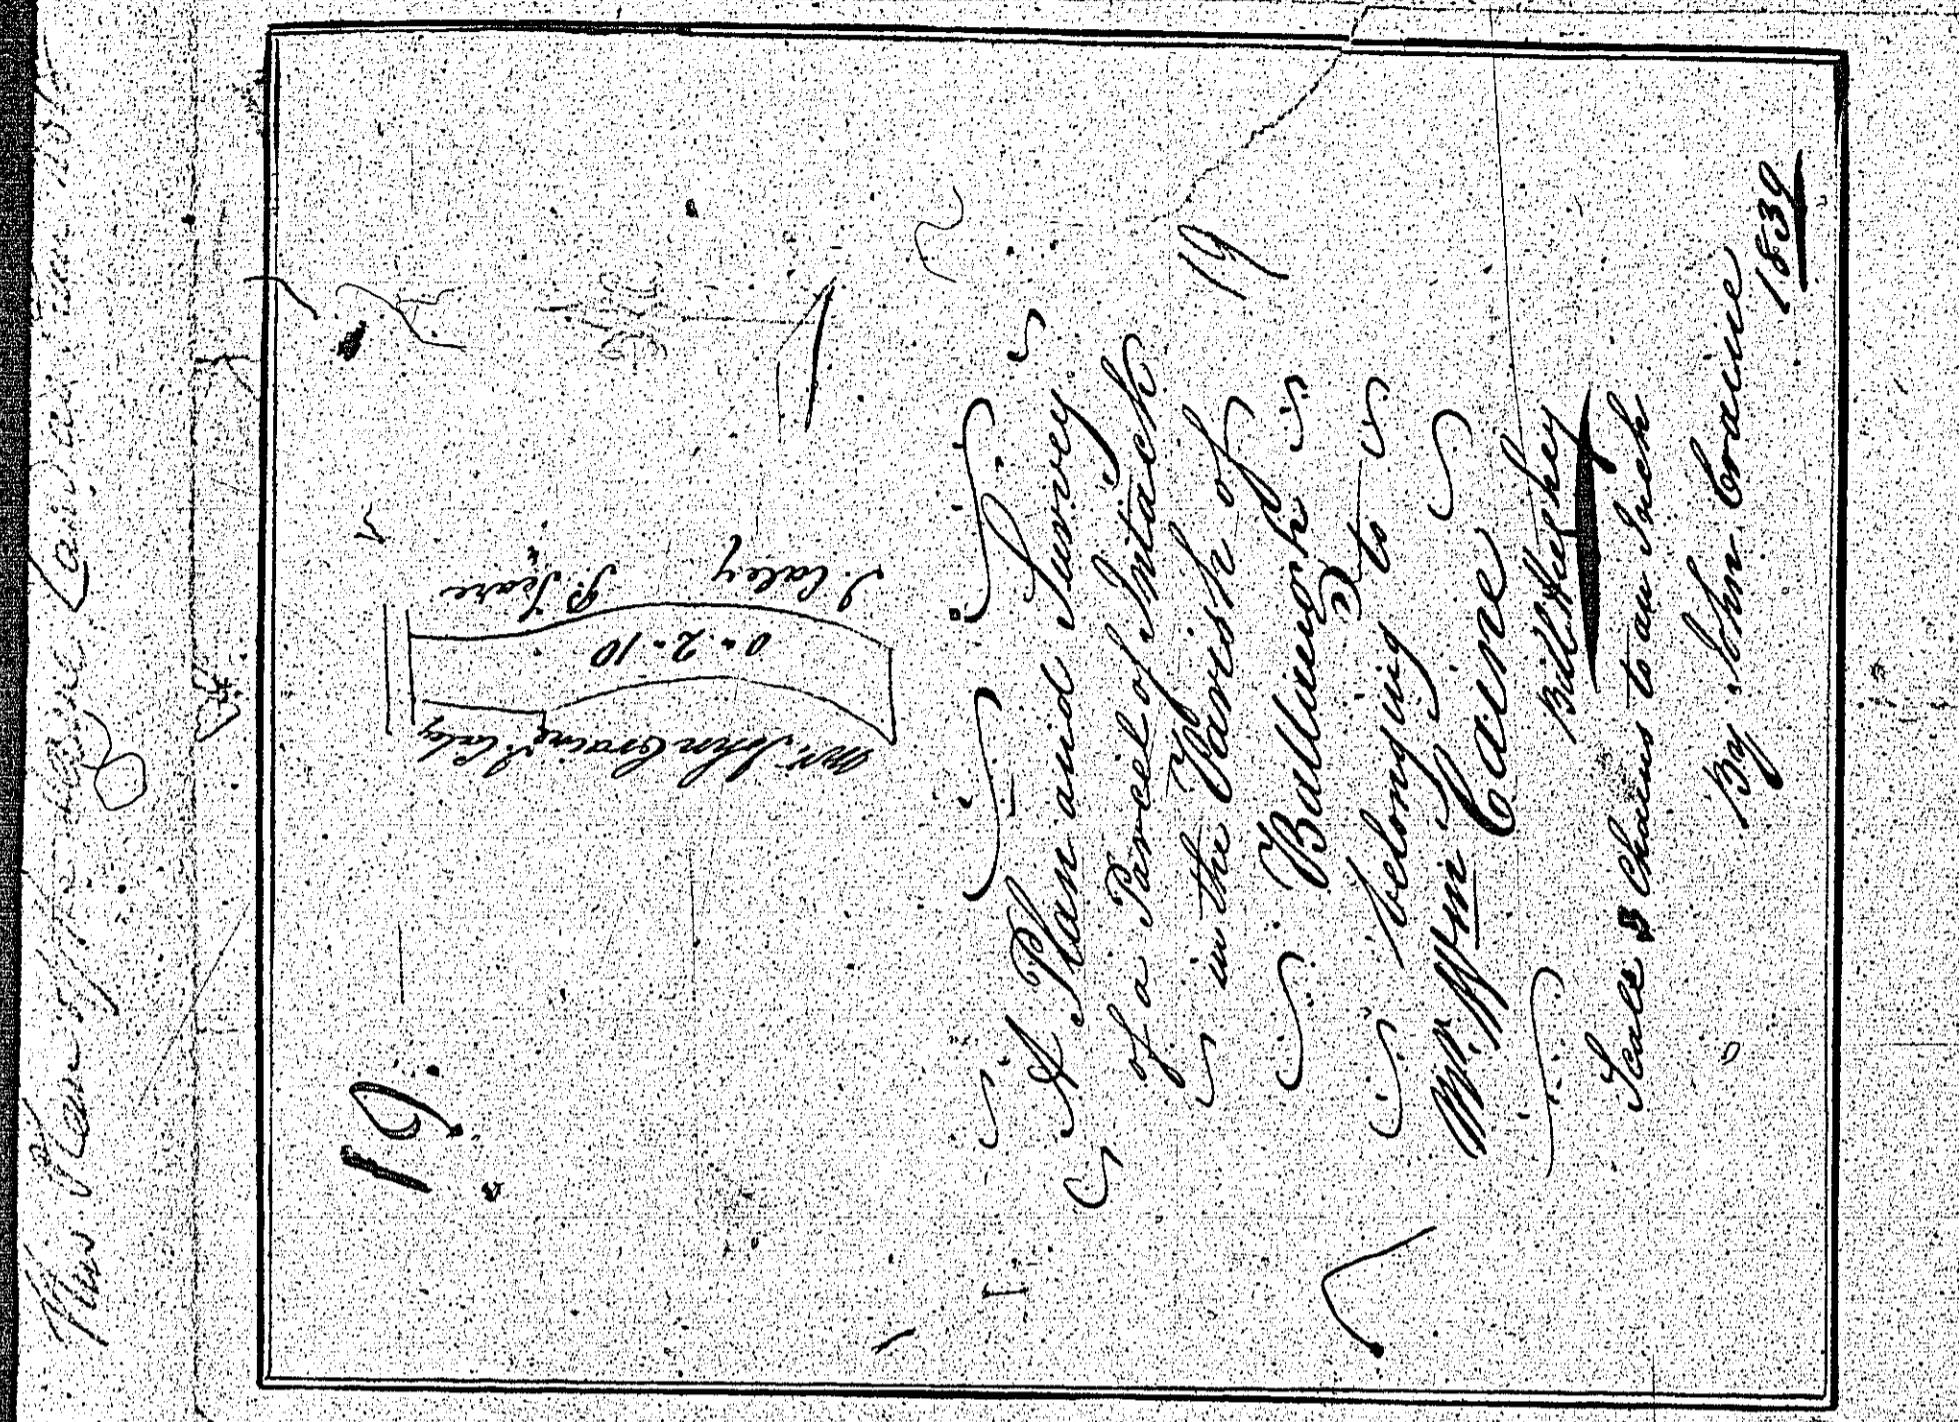 This Plan
19.
P. Teare
J. Caley
0 - 2 - 10
Mr. John Craine
J. Caley
A Plan and Survey
of a Parcel of Intack
in the Parish of
Ballaugh
belonging to
Mr. Wm Caine
19
Scale 3 Chains to an Inch
By John Craine
1839